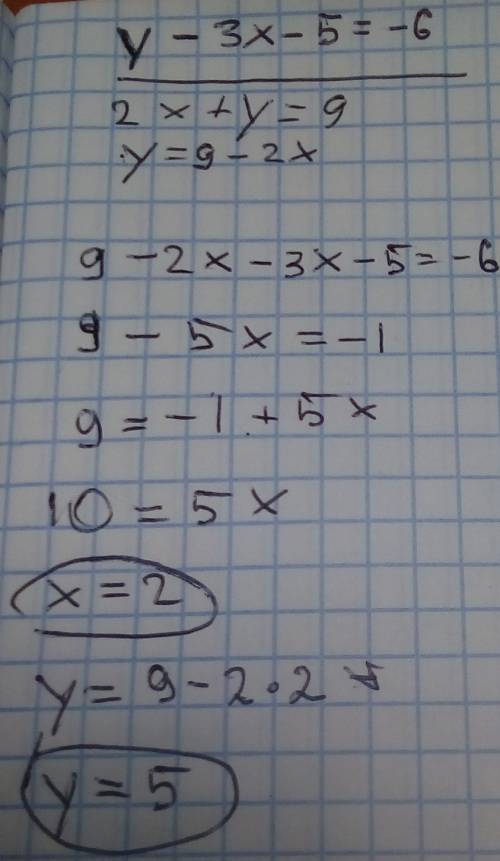 y - 3x - 5 = -6
2x + y = 9
y = 9 - 2x
9 - 2x - 3x - 5 = -6
9 - 5x = -1
9 = -1 + 5x
10 = 5x
x = 2
y = 9 - 2 · 2
y = 5